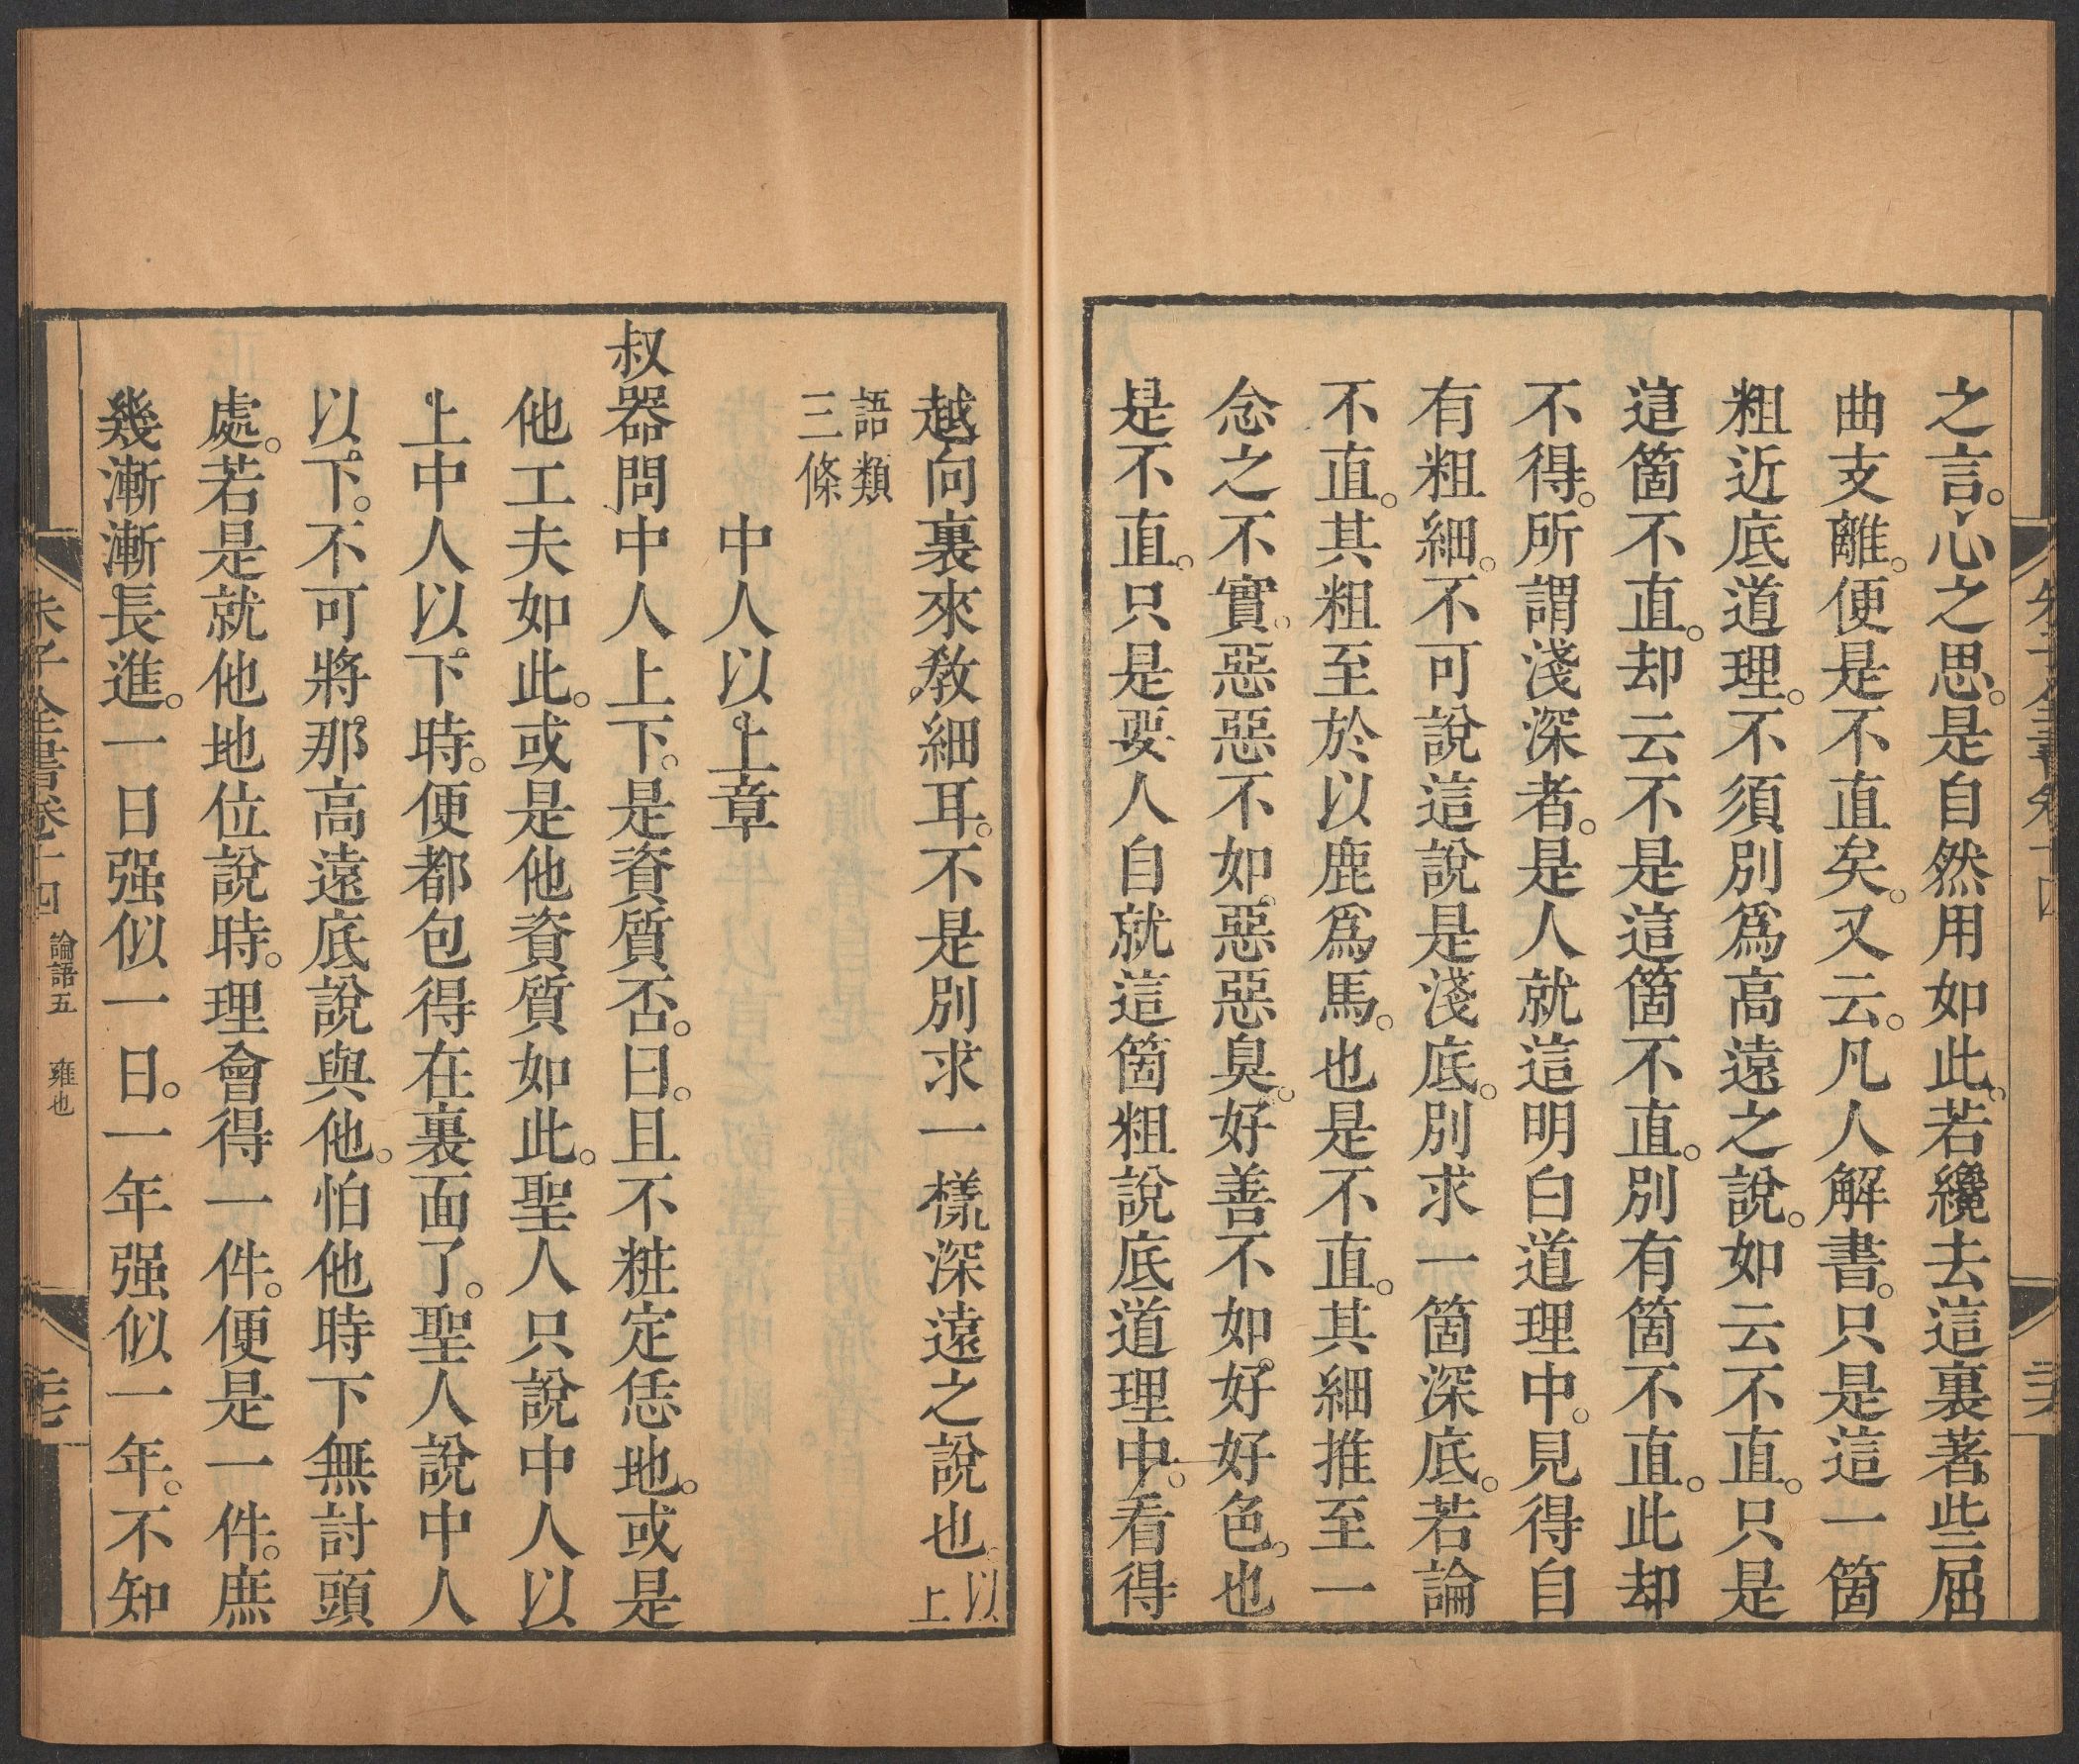 之言。心之思。是自然用如此。若纔去這裏著些屈
曲支離。便是不直矣。又云。凡人解書。只是這一箇
粗近底道理。不須別爲高遠之說。如云不直。只是
這箇不直。却云不是這箇不直。別有箇不直。此却
不得。所謂淺深者。是人就這明白道理中。見得自
有粗細。不可說這說是淺底。別求一箇深底。若論
不直。其粗至於以鹿爲馬。也是不直。其細推至一
念之不實。惡惡不如惡惡臭。好善不如好好色。也
是不直。只是要人自就這箇粗說底道理中。看得
越向裏來教細耳。不是別求一樣深遠之說也。以上
語類
三條
中人以上章
叔器問中人上下。是資質否。曰。且不粧定恁地。或是
他工夫如此。或是他資質如此。聖人只說中人以
上中人以下時。便都包得在裏面了。聖人說中人
以下。不可將那高遠底說與他。怕他時下無討頭
處。若是就他地位說時。理會得一件。便是一件。庶
幾漸漸長進。一日强似一日。一年强似一年。不知
朱子全書卷十四 論語五 雍也